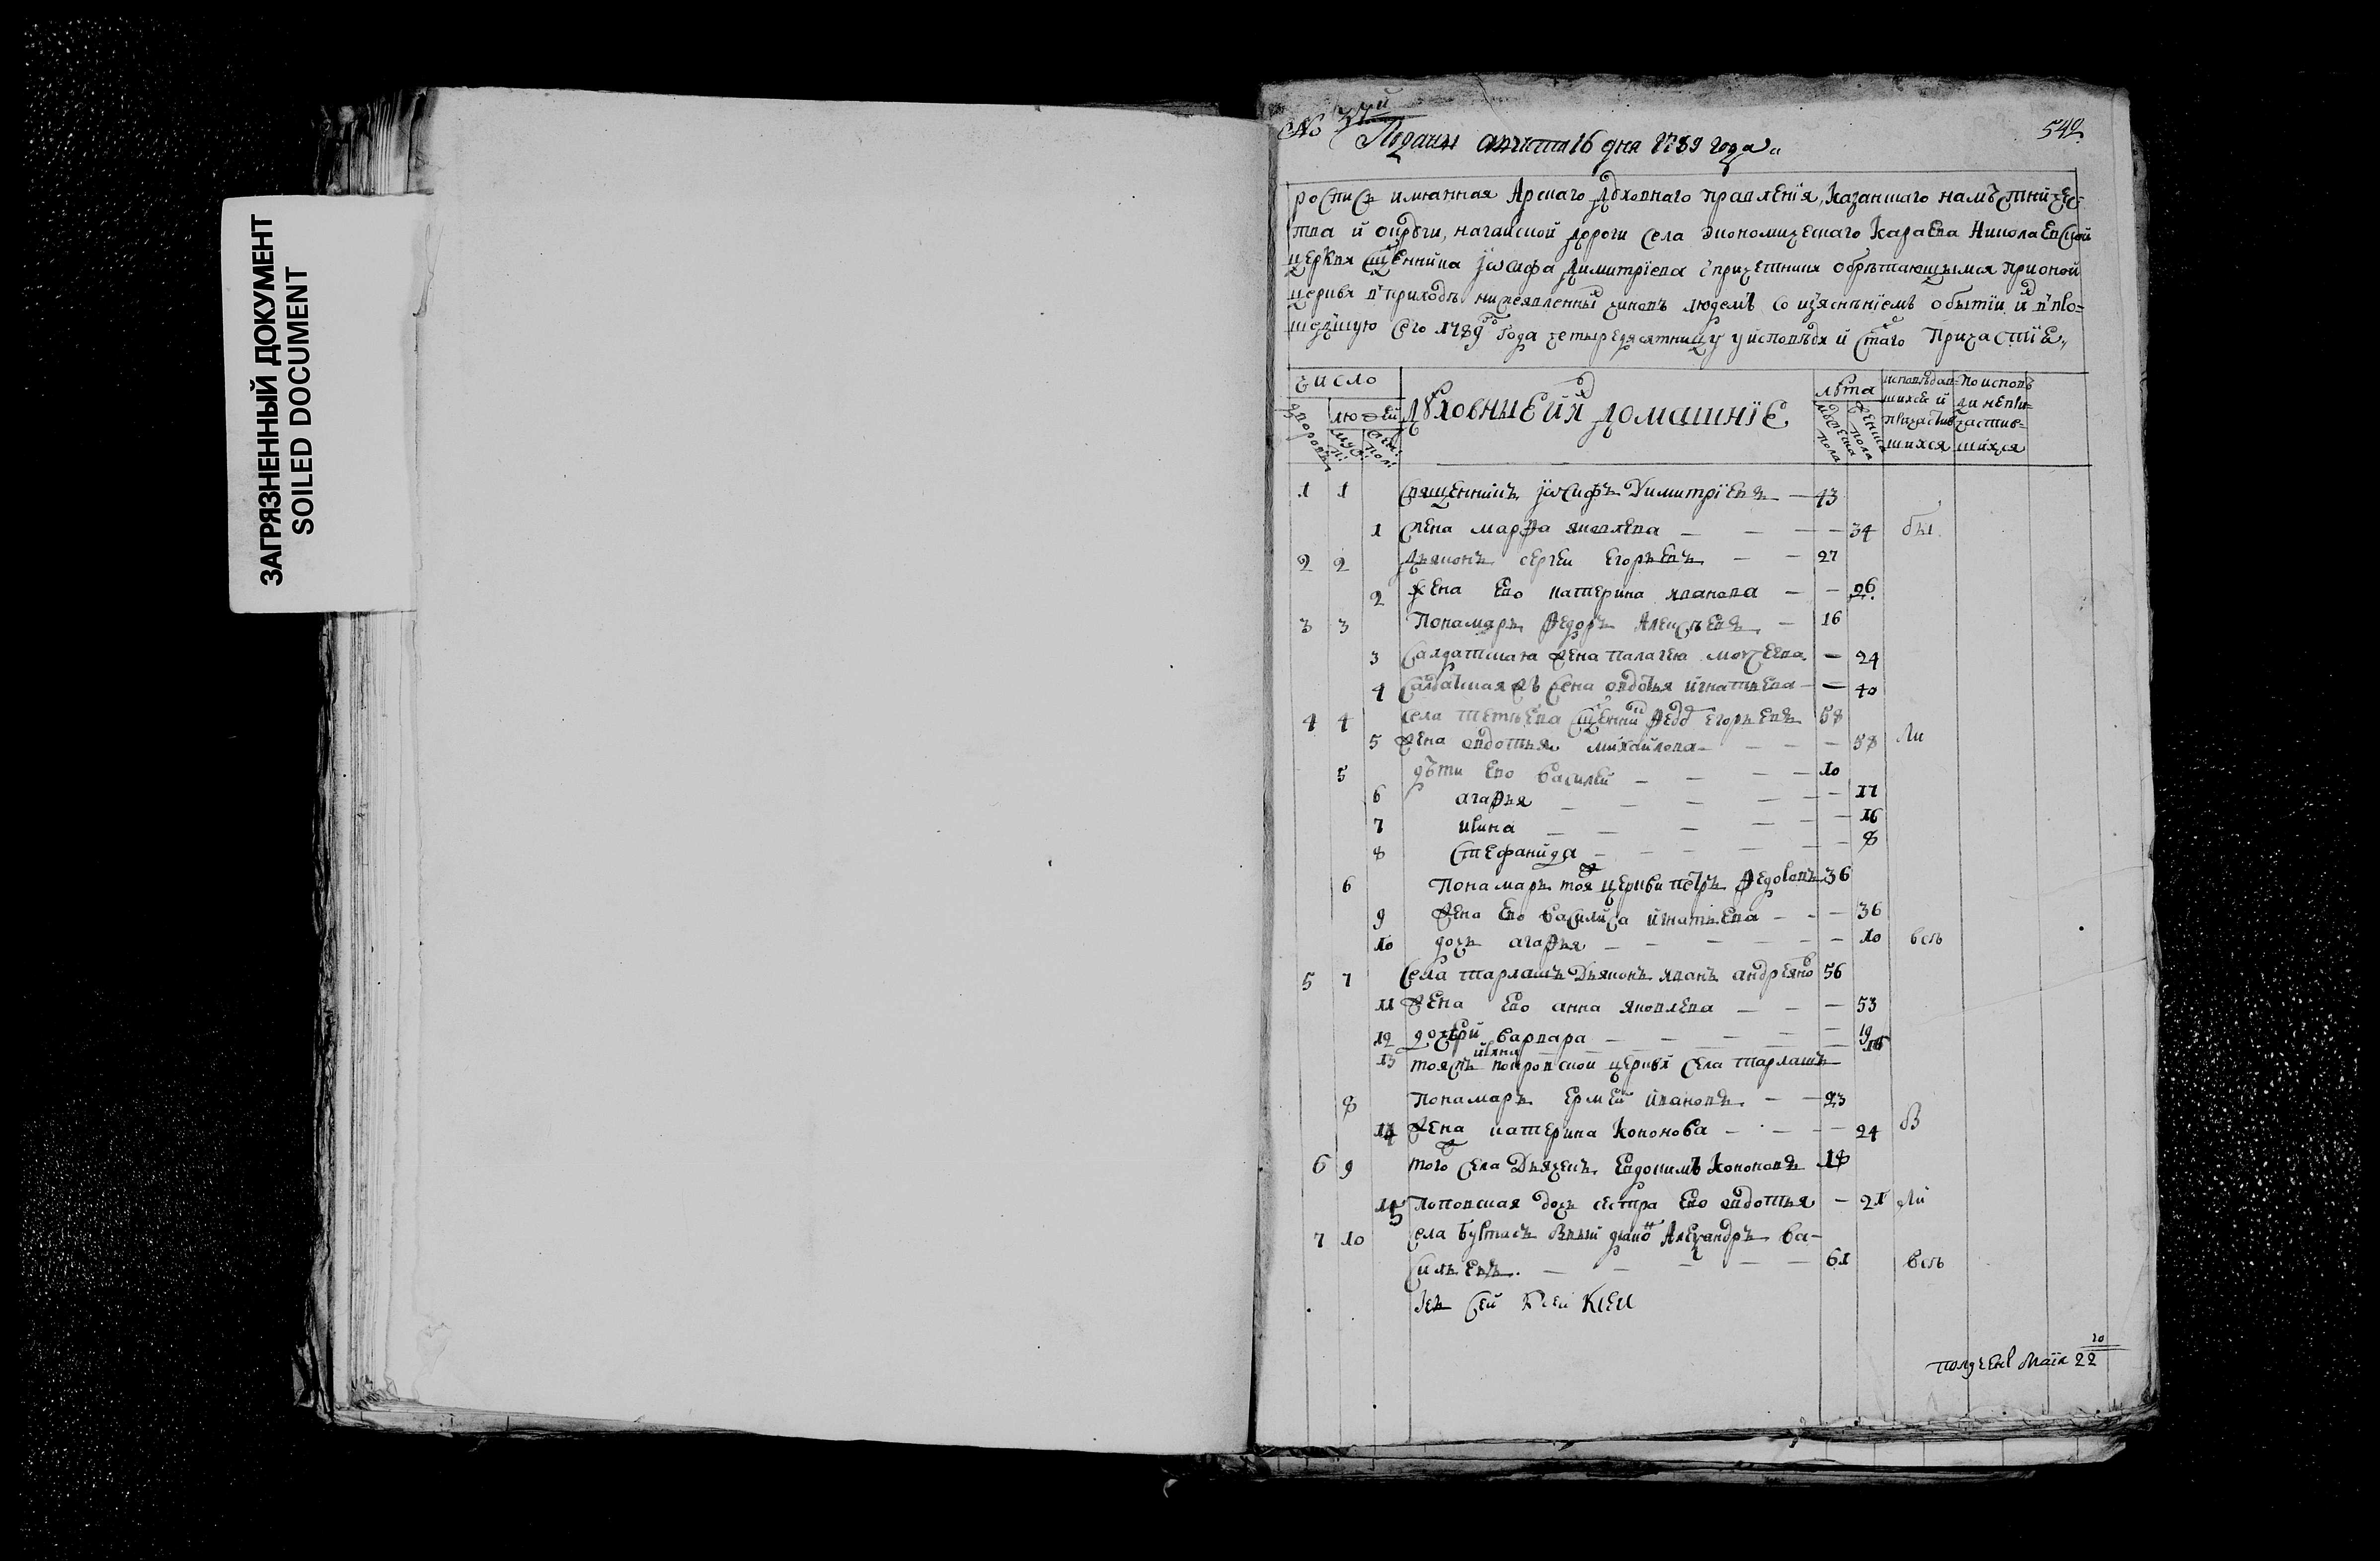 ЗАГРЯЗНЕННЫЙ ДОКУМЕНТ
SOILED DOCUMENT
№ 37й
540
Подана августа 16 дня 1789 года
роспись имянная Арскаго духовнаго правления, казанскаго намѣстничес-
тва й округи, нагайской дороги села экономическаго караева Николаевской
церквя сщенника Iѡсифа Димитрïева с причетники обрѣтающымся прионой
церквя в приходѣ нижеявленных чиновъ людемъ со изяснѣнïемъ о бытïи их в про=
шедшую сего 1789го года четыредясятницу у исповѣдя й стаго причастïе
число
дворовъ
людей
муж: п:
жен: пол:
духовные й их домашнïе
лѣта
мужеска пола
женска пола
исповѣдав=
шихся й
причастив
шихся
по исповѣ
ди непри=
частив=
шихся
1 1 священникъ Iѡсифъ Димитрïевъ 43
1 жена марфа яковлева 34 бы
2 2 дьяконъ сергеи егорьевъ 27
2 жена ево катерина яванова 26
3 3 Понамарь федоръ Алексѣевъ 16
3 салдатская жена палагея 24
4 салдатская жена овдотья игнатьева 40
4 4 села тетѣева сщенник федо егорьевъ 58
5 жена овдотья михайлова 58 ли
5 дѣти ево василей 10
6 агафья 17
7 ирина 16
8 стефанида 8
6 Понамарь тоя церкви петръ федоровъ 36
9 жена ево василиса игнатьева 36
10 дочь агафья 10 всѣ
5 7 села тарлашъ дьяконъ яванъ андреяно 56
11 жена ево анна яковлева 53
12 дочери варвара 19
13
тояжъ покровской церквя села тарлашъ
8 Понамарь ермей ивановъ 23
14 жена катерина кононова 24 в
6 9 того села дьячекъ евдокимъ кононовъ 18
15 поповская дочь сестра ево овдотья 21 ли
7 10 села Александръ ва-
сильевъ 61 всѣ
получена маïя 22